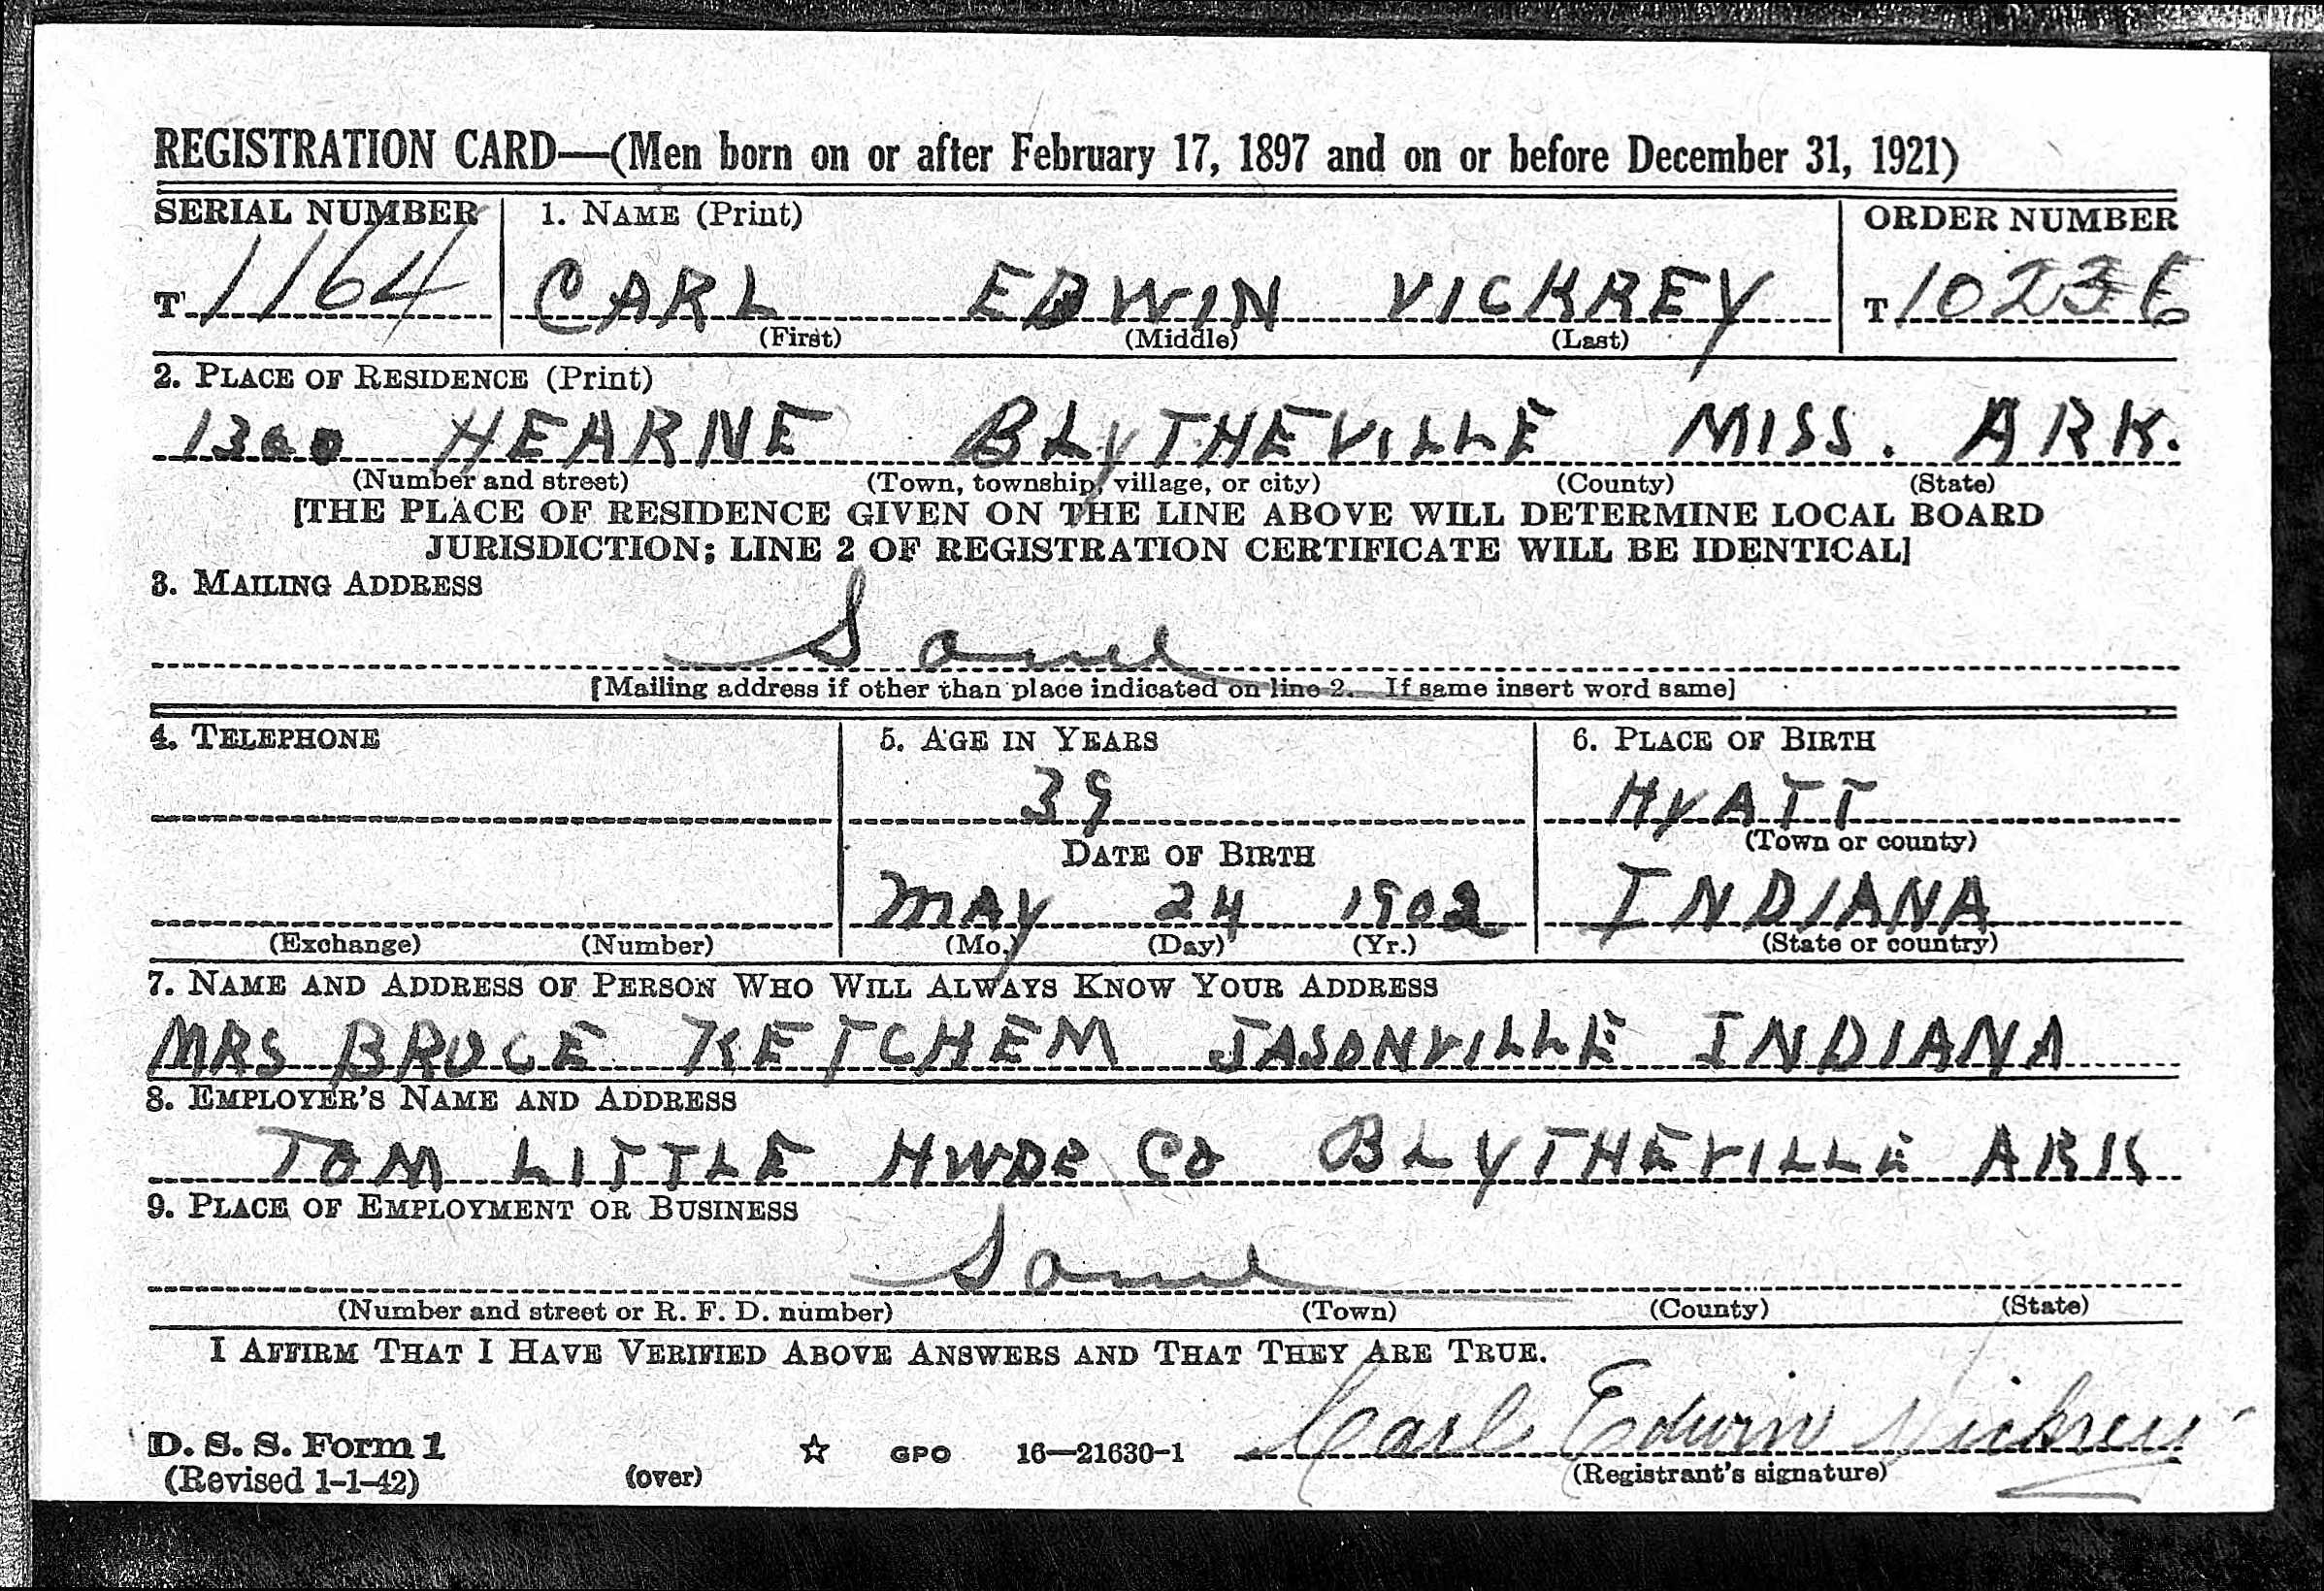 REGISTRATION CARD—(Men born on or after February 17, 1897 and on or before December 31, 1921)
SERIAL NUMBER 1. NAME (Print) ORDER NUMBER
T 1164 CARL EDWIN VICKREY T 10236
(First) (Middle) (Last)
2. PLACE OF RESIDENCE (Print)
1300 HEARNE BLYTHEVILLE MISS. ARK.
(Number and street) (Town, township, village, or city) (County) (State)
[THE PLACE OF RESIDENCE GIVEN ON THE LINE ABOVE WILL DETERMINE LOCAL BOARD
JURISDICTION; LINE 2 OF REGISTRATION CERTIFICATE WILL BE IDENTICAL]
3. MAILING ADDRESS
Same
[Mailing address if other than place indicated on line 2. If same insert word same]
4. TELEPHONE 5. AGE IN YEARS 6. PLACE OF BIRTH
39 HYATT
(Town or county)
DATE OF BIRTH
MAY 24 1902 INDIANA
(Exchange) (Number) (Mo.) (Day) (Yr.) (State or country)
7. NAME AND ADDRESS OF PERSON WHO WILL ALWAYS KNOW YOUR ADDRESS
MRS BRUCE KETCHEM JASONVILLE INDIANA
8. EMPLOYER'S NAME AND ADDRESS
TOM LITTLE HWDR CO BLYTHEVILLE ARK
9. PLACE OF EMPLOYMENT OR BUSINESS
Same
(Number and street or R. F. D. number) (Town) (County) (State)
I AFFIRM THAT I HAVE VERIFIED ABOVE ANSWERS AND THAT THEY ARE TRUE.
Carl Edwin Vickrey
D. S. S. Form 1 ☆ GPO 16—21630-1
(Revised 1-1-42) (over) (Registrant's signature)